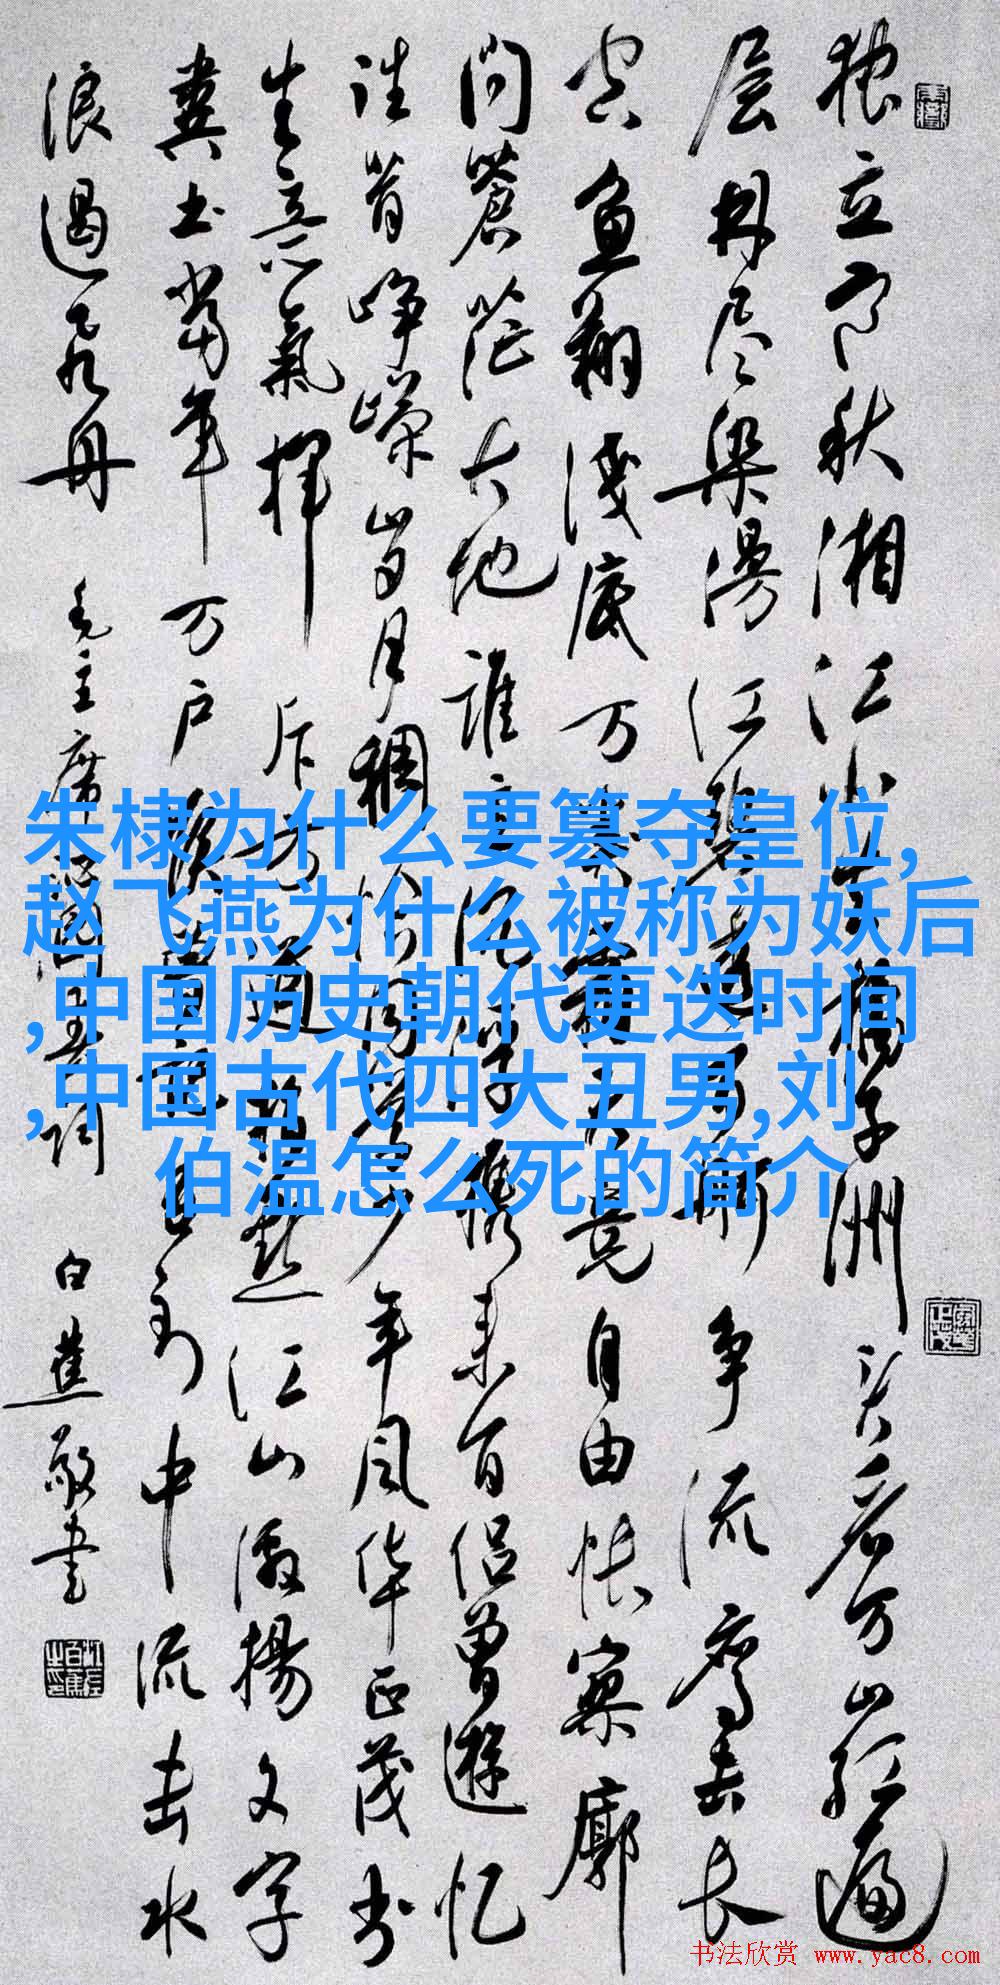 独立寒秋湘江北去橘子洲头看万山红遍
层林尽染漫江碧透百舸争流鹰击长
空鱼翔浅底万类霜天竞自由怅寥廓
问蒼茫大地谁主沉浮携来百侣曾遊忆
往昔峥嵘岁月稠恰同学少年风华正茂书
生意氣挥斥方遒指点江山激揚文字
粪土当年万户侯曾记否到中流击水
浪遏飞舟
毛主席
白蕉敬书
朱棣为什么要篡夺皇位,
赵飞燕为什么被称为妖后
,中国历史朝代更迭时间
,中国古代四大丑男,刘
伯温怎么死的简介
书法欣赏 www.yac8.com